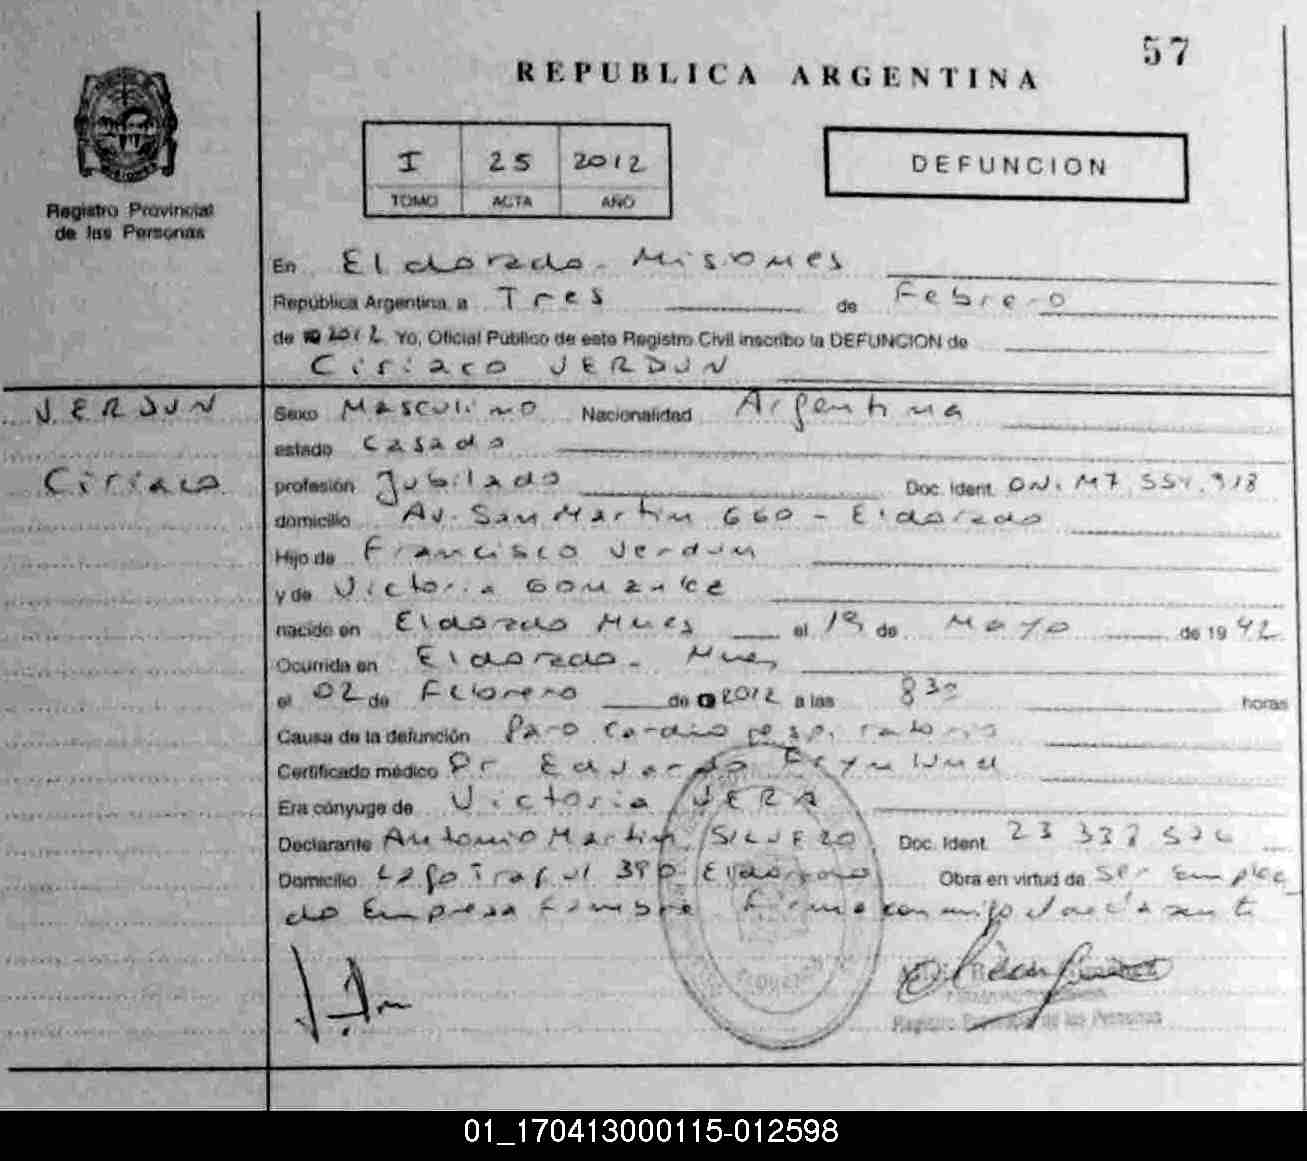 57
REPUBLICA ARGENTINA
I 25 2012
TOMO ACTA AÑO
DEFUNCION
Registro Provincial
de las Personas
En Eldorado - Misiones
República Argentina, a Tres de Febrero
de 2012 Yo, Oficial Público de este Registro Civil inscribo la DEFUNCION de
Ciriaco VERDUN
VERDUN
Ciriaco
Sexo Masculino Nacionalidad Argentina
estado Casado
profesión Jubilado Doc. Ident. DNI. M7.554.918
domicilio Av. San Martin 660 - Eldorado
Hijo de Francisco Verdun
y de Victoria
nacido en Eldorado Mnes el 19 de Mayo de 1942
Ocurrida en Eldorado - Mnes
el 02 de Febrero de 2012 a las 8 30 horas
Causa de la defunción Paro Cardio respiratorio
Certificado médico Dr Eduardo
Era cónyuge de Victoria VERA
Declarante Antonio Martin SILVERO Doc. Ident. 23 337
Domicilio Lago Traful 390 Eldorado Obra en virtud de ser emplea
do Empresa Funebre Firma conmigo el declarante
Registro Provincial de las Personas
01_170413000115-012598